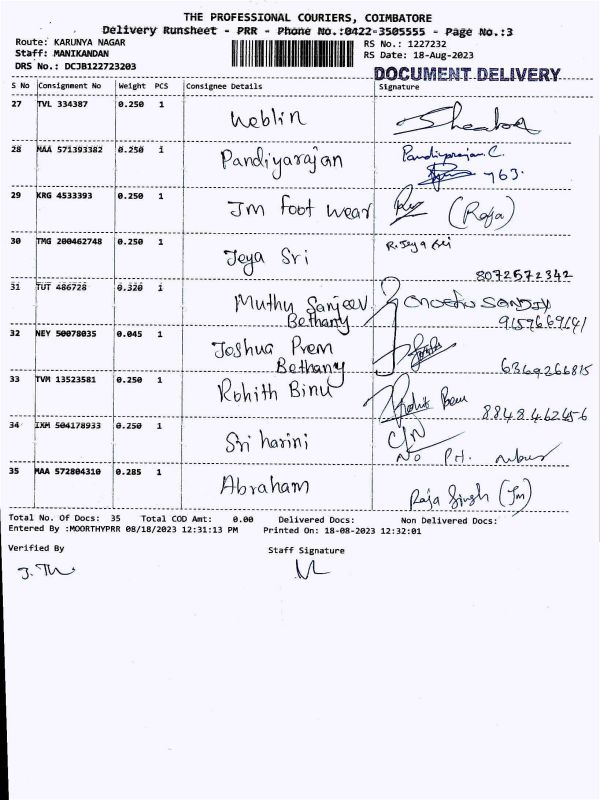 THE PROFESSIONAL COURIERS, COIMBATORE
Delivery Runsheet - PRR - Phone No.:0422-3505555 - Page No.:3
Route: KARUNYA NAGAR RS No.: 1227232
Staff: MANIKANDAN RS Date: 18-Aug-2023
DRS No.: DCJB122723203
DOCUMENT DELIVERY
S No Consignment No Weight PCS Consignee Details Signature
27 TVL 334387 0.250 1 Keblin
28 MAA 571393382 0.250 1 Pandiyarajan Pandiyarajan C.
763.
29 KRG 4533393 0.250 1 Jm Foot wear (Raja)
30 TMG 200462748 0.250 1 Jeya Sri R. Jeya Sri
8072572342
31 TUT 486728 0.320 1 Muthu Sanjeev
Bethany 9159669141
32 NEY 50078035 0.045 1 Joshua Prem
Bethany 6369266815
33 TVM 13523581 0.250 1 Rohith Binu
8848462456
34 IXM 504178933 0.250 1 Sri harini C/N
No PH.
35 MAA 572804310 0.285 1 Abraham Raja Singh (Jm)
Total No. Of Docs: 35 Total COD Amt: 0.00 Delivered Docs: Non Delivered Docs:
Entered By :MOORTHYPRR 08/18/2023 12:31:13 PM Printed On: 18-08-2023 12:32:01
Verified By Staff Signature